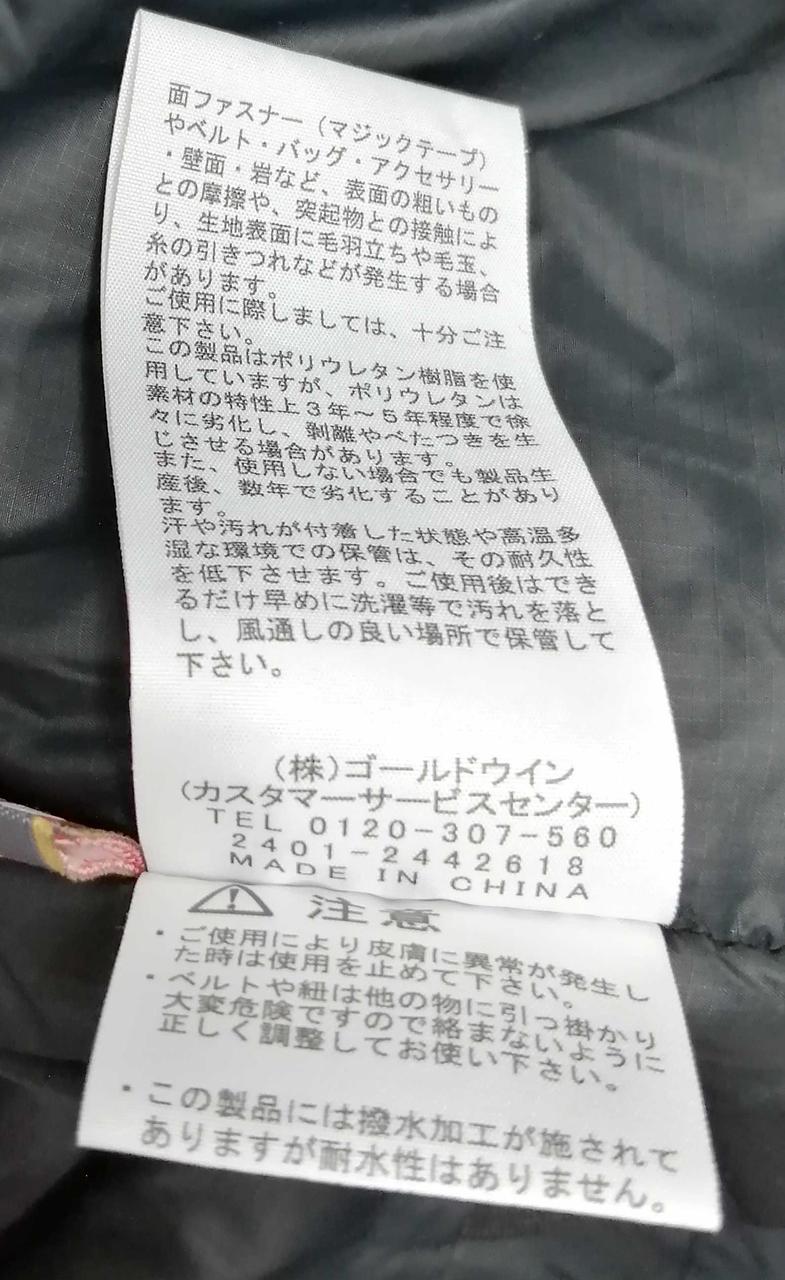 面ファスナー(マジックテープ)
やベルト・バッグ・アクセサリー
・壁面・岩など、表面の粗いもの
との摩擦や、突起物との接触によ
り、生地表面に毛羽立ちや毛玉、
糸の引きつれなどが発生する場合
があります。
ご使用に際しましては、十分ご注
意下さい。
この製品はポリウレタン樹脂を使
用していますが、ポリウレタンは
素材の特性上3年～5年程度で徐
々に劣化し、剥離やべたつきを生
じさせる場合があります。
また、使用しない場合でも製品生
産後、数年で劣化することがあり
ます。
汗や汚れが付着した状態や高温多
湿な環境での保管は、その耐久性
を低下させます。ご使用後はでき
るだけ早めに洗濯等で汚れを落と
し、風通しの良い場所で保管して
下さい。
(株)ゴールドウイン
(カスタマーサービスセンター)
TEL 0120-307-560
2401-2442618
MADE IN CHINA
注意
・ご使用により皮膚に異常が発生し
た時は使用を止めて下さい。
・ベルトや紐は他の物に引っ掛かり
大変危険ですので絡まないように
正しく調整してお使い下さい。
・この製品には撥水加工が施されて
ありますが耐水性はありません。